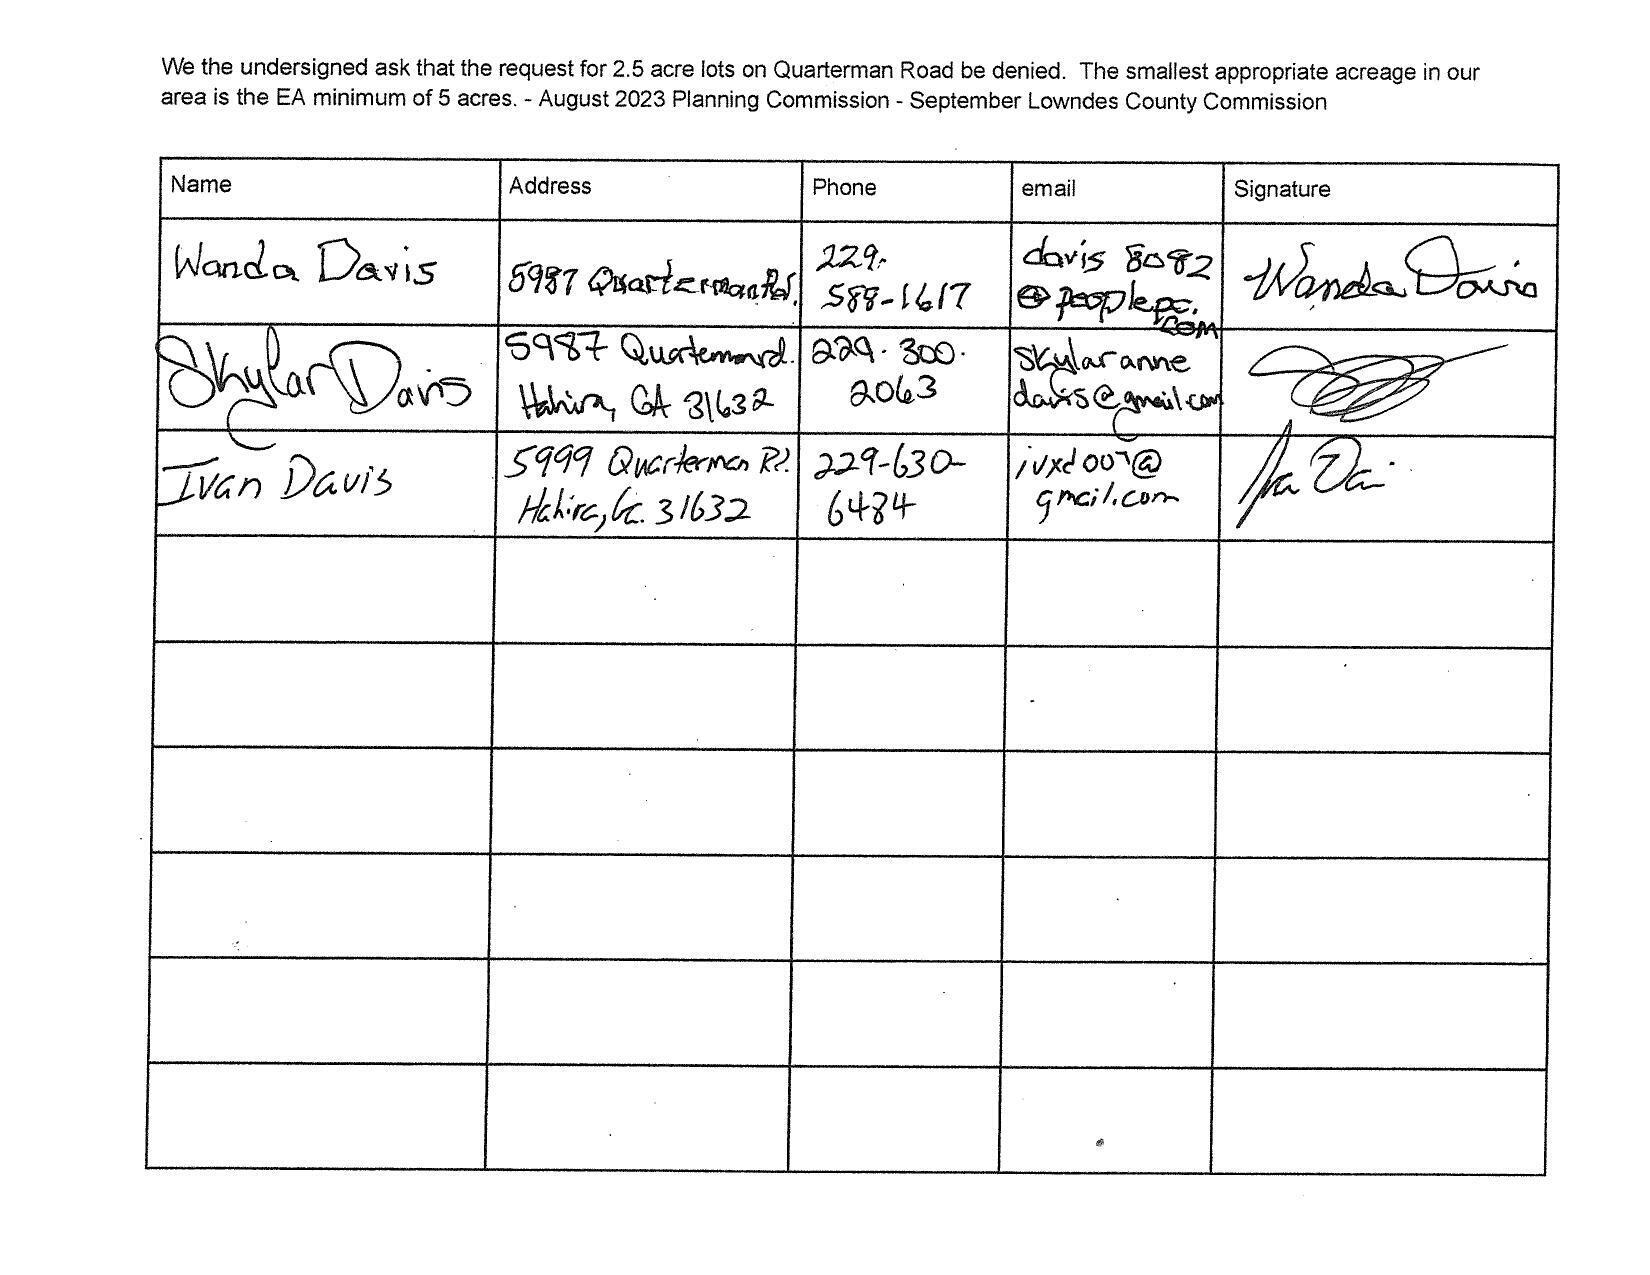 We the undersigned ask that the request for 2.5 acre lots on Quarterman Road be denied. The smallest appropriate acreage in our
area is the EA minimum of 5 acres. - August 2023 Planning Commission - September Lowndes County Commission
Name Address Phone email Signature
Wanda Davis
5987 Quarterman Rd.
229.
588-1617
davis 8082
@peoplepc.
com
Wanda Davis
Skylar Davis
5987 Quarterman rd.
Hahira, GA 31632
229.300.
2063
skylaranne
davis@gmail.com
Ivan Davis
5999 Quarterman Rd.
Hahira, Ga. 31632
229-630-
6484
ivxd007@
gmail.com